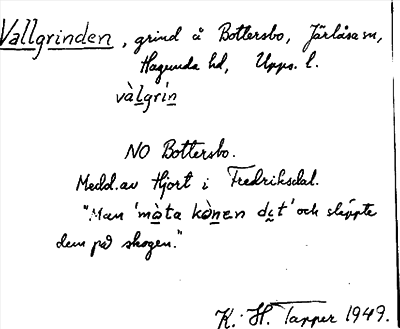 Vallgrinden, grind å Bottersbo, Järlåsa sn,
Hagunda hd, Upps. l.
và̀lgrín
NO Bottersbo.
Medd. av Hjort i Fredriksdal.
"Man 'mɔ̀ta kɔ̀nen dɛt' och släppte
dem på skogen."
K. H. Tapper 1949.